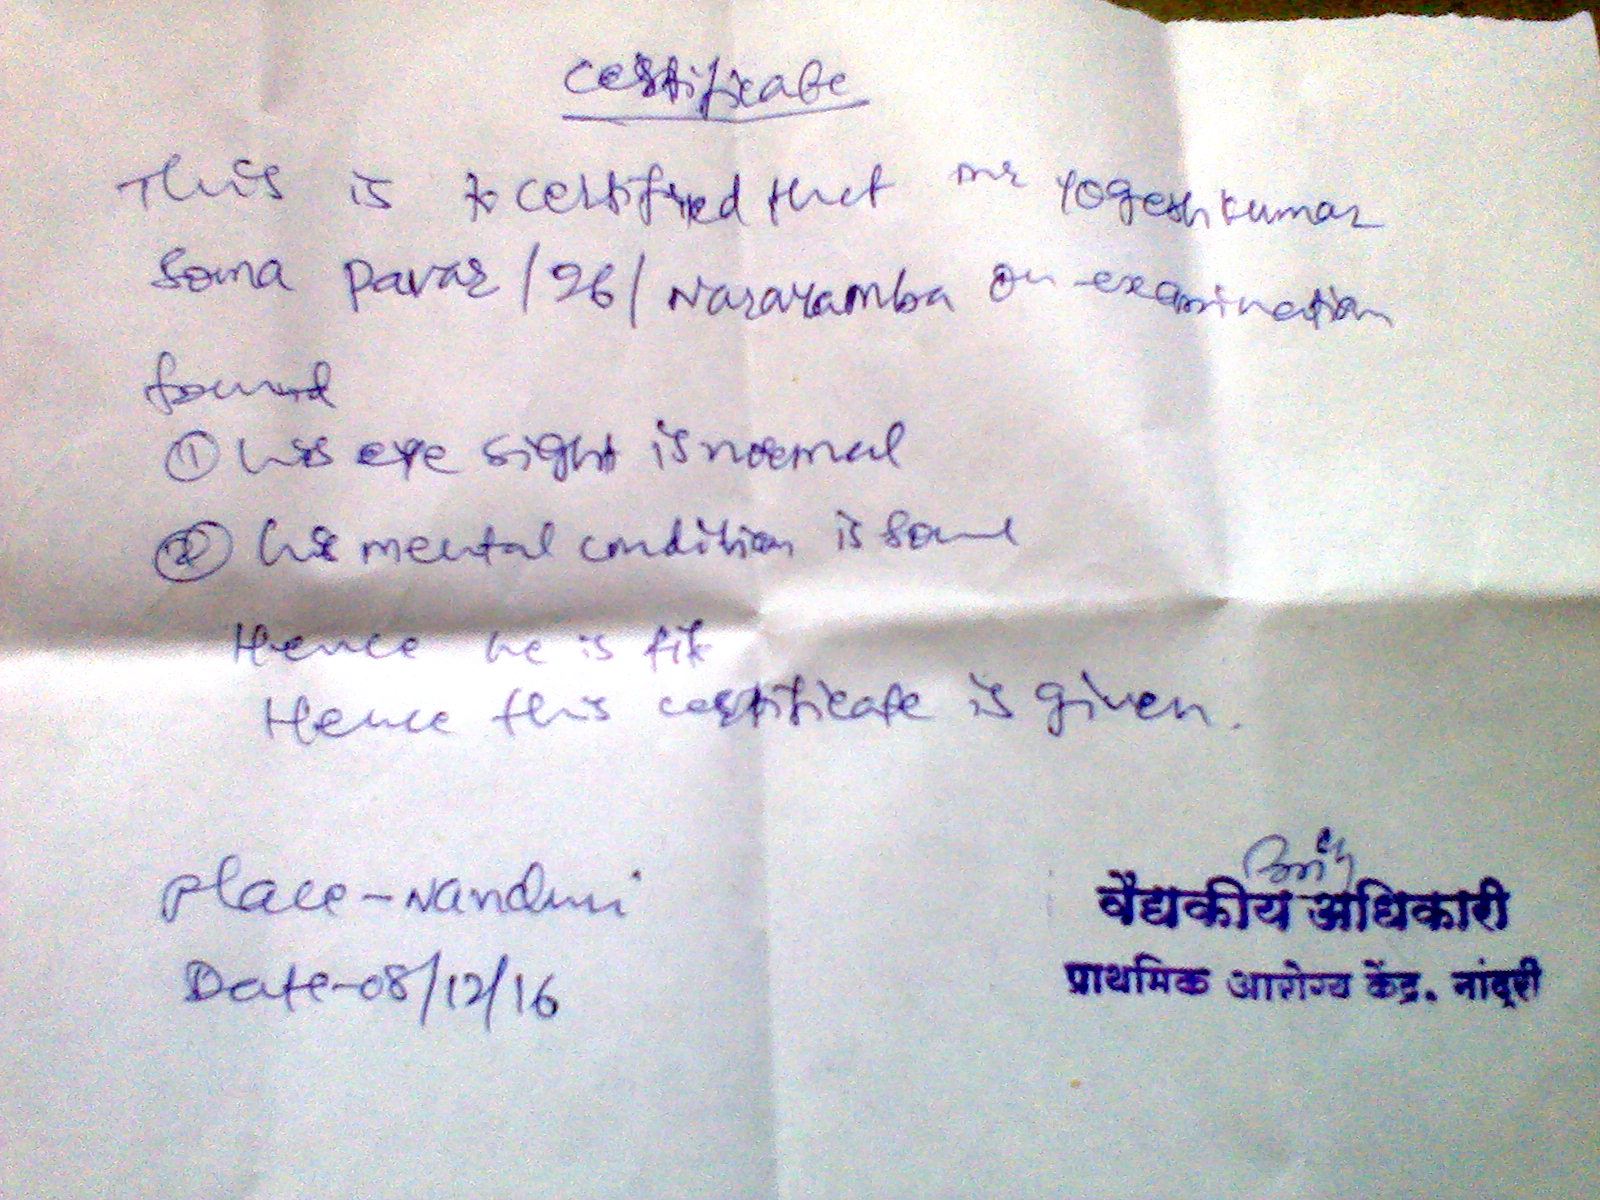 certificate
This is to certified that mr Yogeshkumar
Soma Pavar /26/ Nararamba on examination
found
① his eye sight is normal
② his mental condition is sound
Hence he is fit
Hence this certificate is given.
Place - Nanduri
Date - 08/12/16
वैद्यकीय अधिकारी
प्राथमिक आरोग्य केंद्र. नांदूरी